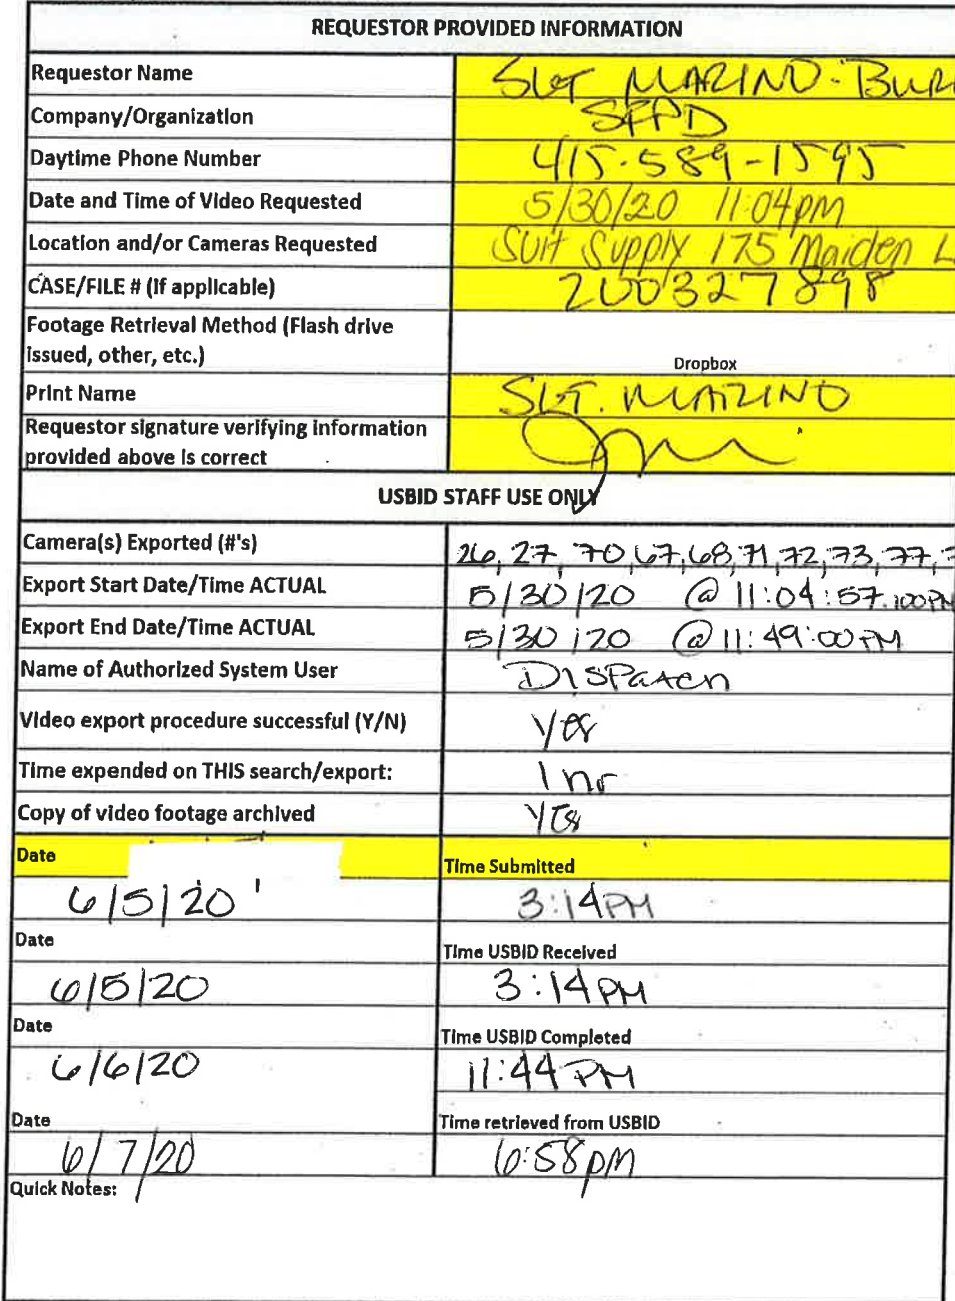 REQUESTOR PROVIDED INFORMATION
Requestor Name SGT MARINO-BUR
Company/Organization SFPD
Daytime Phone Number 415.589-1595
Date and Time of Video Requested 5/30/20 11:04pm
Location and/or Cameras Requested Suit Supply 175 Maiden L
CASE/FILE # (if applicable) 200327898
Footage Retrieval Method (Flash drive
issued, other, etc.) Dropbox
Print Name SGT. MARINO
Requestor signature verifying information
provided above is correct
USBID STAFF USE ONLY
Camera(s) Exported (#'s) 26, 27, 70, 67, 68, 71, 72, 73, 77,
Export Start Date/Time ACTUAL 5/30/20 @ 11:04:57.100PM
Export End Date/Time ACTUAL 5/30/20 @ 11:49:00 PM
Name of Authorized System User Dispatch
Video export procedure successful (Y/N) Yes
Time expended on THIS search/export: 1 hr
Copy of video footage archived Yes
Date Time Submitted
6/5/20 3:14 PM
Date Time USBID Received
6/5/20 3:14 PM
Date Time USBID Completed
6/6/20 11:44 PM
Date Time retrieved from USBID
6/7/20 6:58pm
Quick Notes: